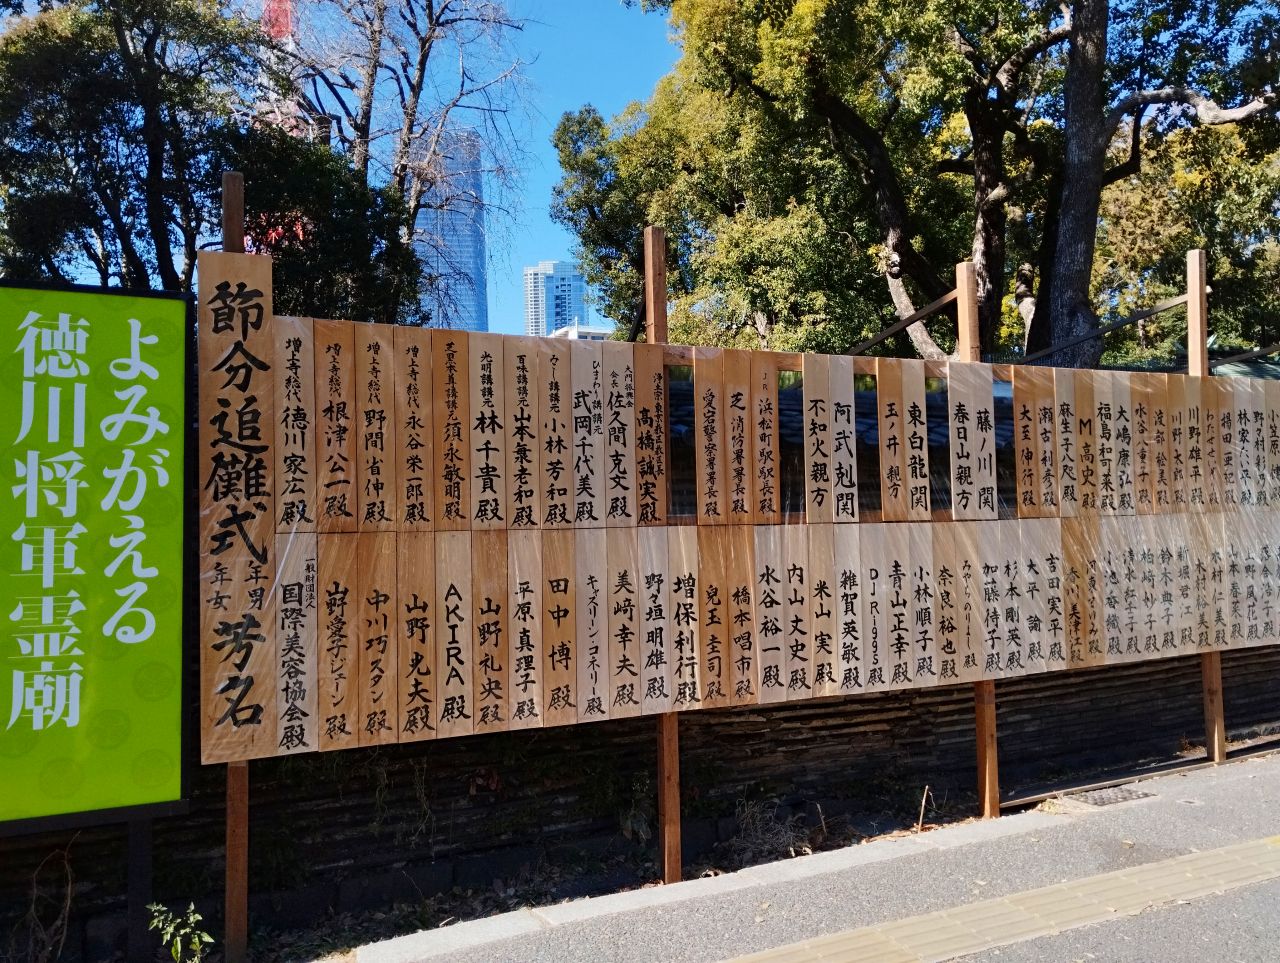 よみがえる
徳川将軍霊廟
節分追儺式 年男 年女 芳名
増上寺総代 徳川家広殿
増上寺総代 根津公一殿
増上寺総代 野間省伸殿
増上寺総代 永谷栄一郎殿
須永敏明殿
光明講講元 林千貴殿
百味講講元 山本養老和殿
講元 小林芳和殿
ひまわり講講元 武岡千代美殿
大門振興会会長 佐久間克文殿
高橋誠実殿
愛宕警察署署長殿
芝消防署署長殿
JR浜松町駅駅長殿
不知火親方
阿武剋関
玉ノ井親方
東白龍関
春日山親方
藤ノ川関
大至伸行殿
瀬古利彦殿
麻生子八咫殿
M高史殿
福島和可菜殿
大嶋康弘殿
水谷八重子殿
渡部絵美殿
川野太郎殿
川野雄平殿
わたせせいぞう殿
揚田亜紀殿
林家たい平殿
一般財団法人 国際美容協会殿
山野愛子ジェーン殿
中川巧スタン殿
山野光夫殿
AKIRA殿
山野礼央殿
平原真理子殿
田中博殿
キャズリーンコネリー殿
美﨑幸夫殿
野々垣明雄殿
増保利行殿
兒玉圭司殿
橋本唱市殿
水谷裕一殿
内山丈史殿
米山実殿
雑賀英敏殿
DJR-1995殿
青山正幸殿
小林順子殿
奈良裕也殿
みやじらのりよし殿
加藤待子殿
杉本剛英殿
大平諭殿
吉田実平殿
香川美津江殿
小池香織殿
清水紅子殿
柏崎妙子殿
鈴木典子殿
新堀君江殿
木村裕美殿
木村仁美殿
山本春菜殿
上野風花殿
落合浩子殿